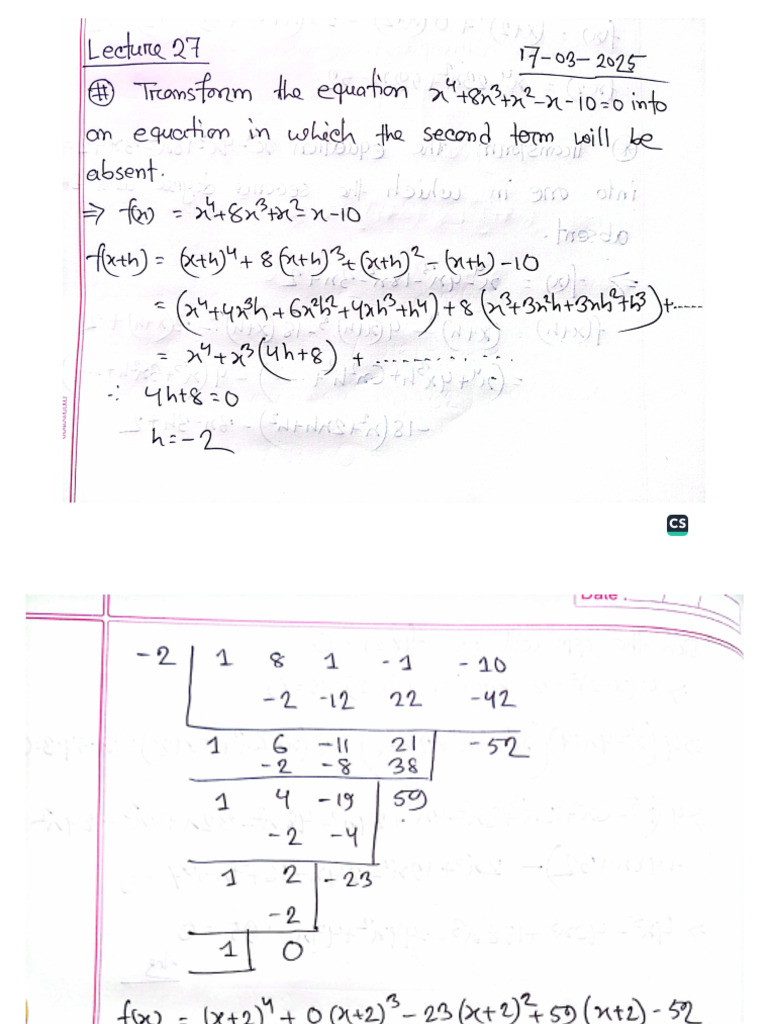 Lecture 27
17-03-2025
# Transform the equation x⁴+8x³+x²-x-10=0 into
an equation in which the second term will be
absent.
⇒ f(x) = x⁴+8x³+x²-x-10
f(x+h) = (x+h)⁴+8(x+h)³+(x+h)²-(x+h)-10
= (x⁴+4x³h+6x²h²+4xh³+h⁴)+8(x³+3x²h+3xh²+h³)+......
= x⁴+x³(4h+8)+.............
∴ 4h+8=0
h=-2
CS
Date :
-2 | 1 8 1 -1 -10
-2 -12 22 -42
1 6 -11 21 | -52
-2 -8 38
1 4 -19 | 59
-2 -4
1 2 | -23
-2
1 | 0
f(x) = (x+2)⁴+0(x+2)³-23(x+2)²+59(x+2)-52